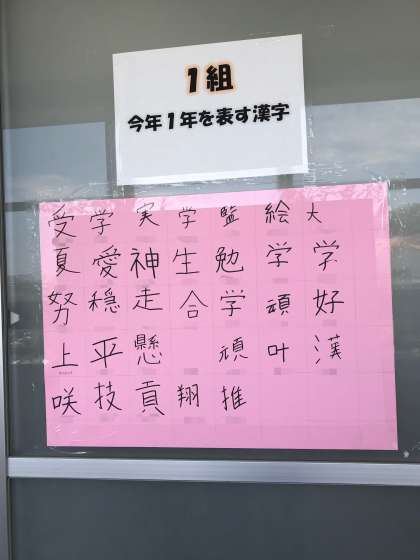 1組
今年1年を表す漢字
受学実学監絵大
夏愛神生勉学学
努穏走合学頑好
上平懸頑叶漢
咲技貢翔推